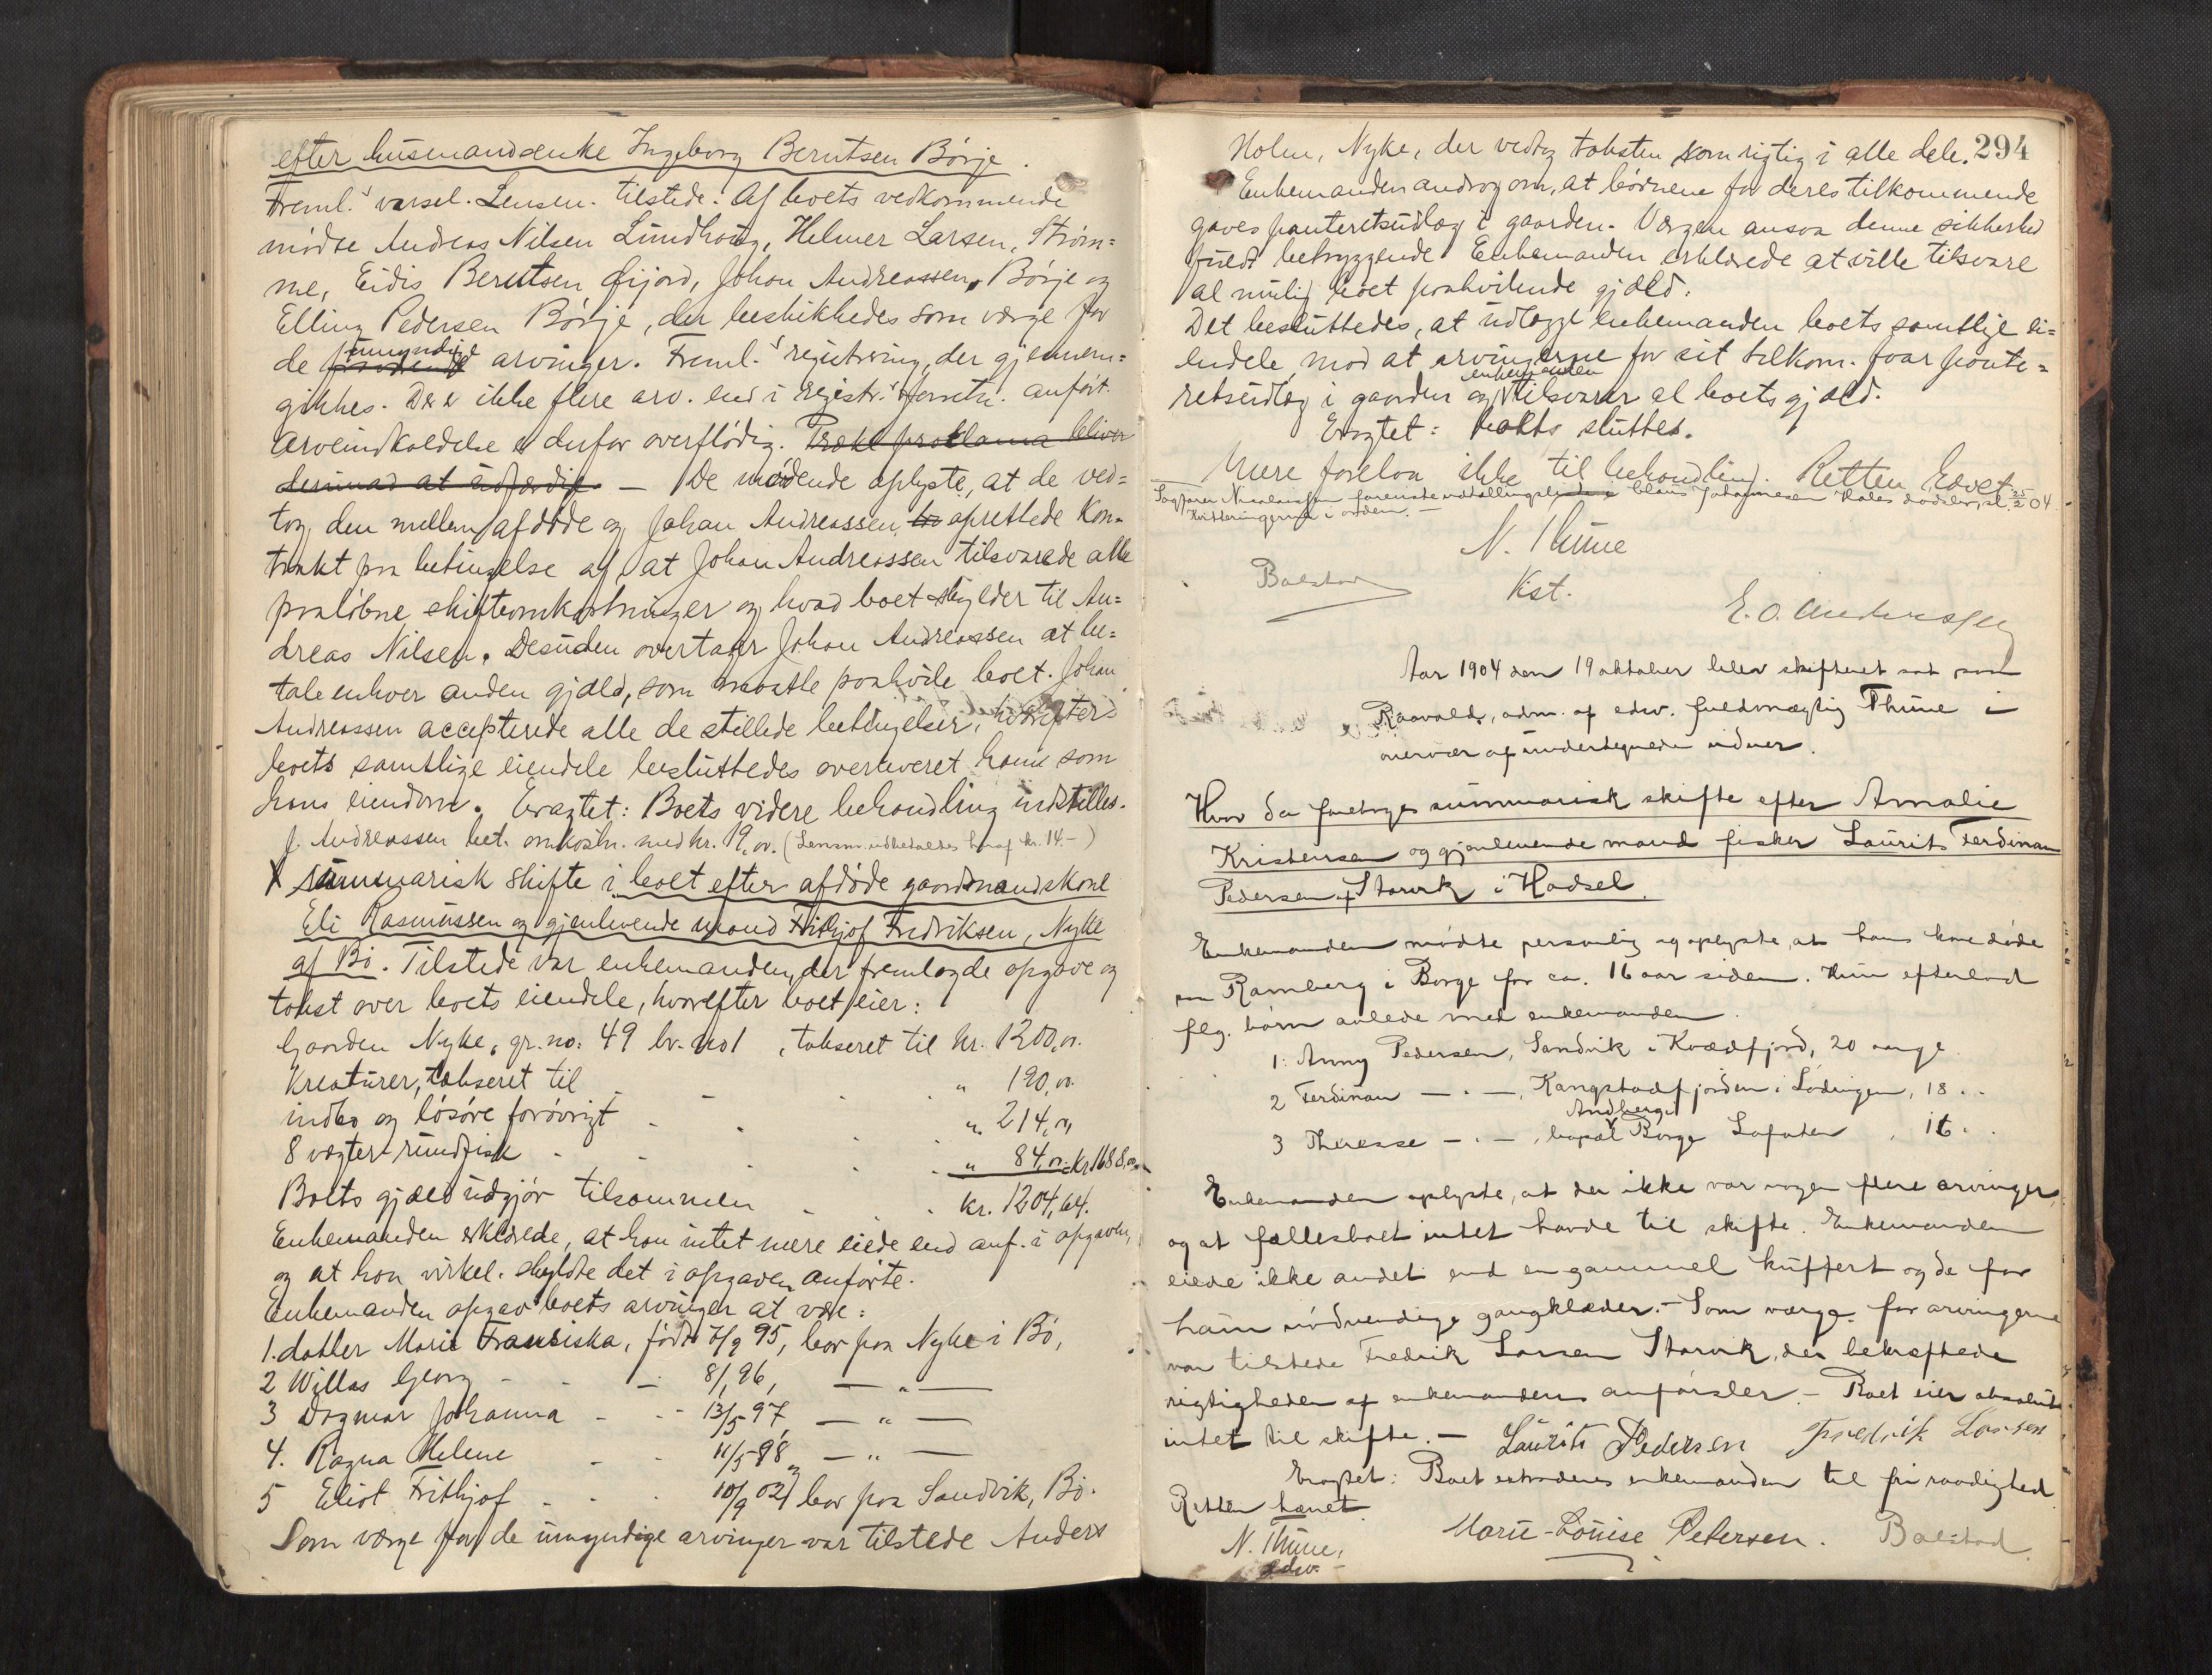 efter husmandsenke Ingeborg Berntsen Börje.
Freml.s varsel. Lensm. tilstede. Af boets vedkommende
mödte Andreas Nilsen Lundhaug, Helmer Larsen, Ström=
me, Eidis Berntsen Öijord, Johan Andreassen, Börje og
Elling Pedersen Börje, der beskikkedes som værge for
de umyndige arvinger. Freml.s registrering, der gjennem=
gikkes. Der er ikke flere arv. end i registr.s forretn. anfört.
Arveindkaldelse er derfor overflödig. Prækl. proklama bliver
derimod at udfærdige. — De mödende oplyste, at de ved=
tog den mellem afdöde og Johan Andreassen oprettede Kon=
trakt paa betingelse af, at Johan Andreassen tilsvarede alle
paalöbne skifteomkostninger og hvad boet skylder til An=
dreas Nilsen. Desuden overtager Johan Andreassen at be=
tale enhver anden gjæld, som maatte paahvile boet. Johan
Andreassen accepterede alle de stillede betingelser, hvorefter
boets samtlige eiendele besluttedes overleveret ham som
hans eiendom. Eragtet: Boets videre behandling indstilles.
J. Andreassen bet. omkostn. med kr. 19,00. (Lensm. udbetaltes heraf kr. 14.-)
X Summarisk skifte i boet efter afdöde gaardmandskone
Eli Rasmussen og gjenlevende mand Frithjof Fredriksen, Nyke
af Bö. Tilstede var enkemanden, der fremlagde opgave og
takst over boets eiendele, hvorefter boet eier:
Gaarden Nyke, gr.no. 49 br.no 1, takseret til kr. 1200,00.
Kreaturer, takseret til - - " 190,00.
indbo og lösöre forövrigt - - - " 214,00
8 vægter rundfisk - - - - " 84,00 = kr. 1688,00
Boets gjæld udgjör tilsammen - - - kr. 1204,64.
Enkemanden erklærede, at han intet mere eiede end anf. i opgaven,
og at han virkel. skyldte det i opgaven anförte.
Enkemanden opgav boets arvinger at være:
1. datter Marie Fransiska, födt 7/9 95, bor paa Nyke i Bö,
2 Willas Georg - - - 8/1 96, — " —
3 Dagmar Johanna - - - 13/5 97, — " —
4. Ragna Helene - - 11/5 98, — " —
5 Eliot Frithjof - - - 10/9 02, bor paa Sandvik, Bö.
Som værge for de umyndige arvinger var tilstede Anders
294
Holm, Nyke, der vedtog taksten som rigtig i alle dele.
Enkemanden androg om, at börnene for deres tilkommende
gaves panteretsudlæg i gaarden. Værgen ansaa denne sikkerhed
fuldt betryggende. Enkemanden erklærede at ville tilsvare
al mulig boet paahvilende gjæld.
Det besluttedes, at udlægge enkemanden boets samtlige ei=
endele, mod at arvingerne for sit tilkom. faar pante=
retsudlæg i gaarden og enkemanden tilsvarer al boets gjæld.
Eragtet: boets sluttes.
Mere forelaa ikke til behandling. Retten hævet
Sagförer Nicolaisen foreviste udtællingsliste i Claus Johannesen Hales dødsbo, sl. 25/2 04.
Kvitteringerne i orden. —
N. Thune
Balstad Kst.
E. O. Anderssen
Aar 1904 den 19 oktober blev skifteret sat paa
Raavolds, adm. af edsv. fuldmægtig Thune i
overvær af undertegnede vidner.
Hvor da foretoges summarisk skifte efter Amalie
Kristensen og gjenlevende mand fisker Laurits Ferdinan
Pedersen af Storvik i Hadsel.
Enkemanden mödte personlig og oplyste, at hans kone döde
paa Ramberg i Borge for ca. 16 aar siden. Hun efterlod
flg. börn avlede med enkemanden.
1. Anny Pedersen, Sandvik i Kvædfjord, 20 aar gl.
2 Ferdinan — " —, Kangstadfjorden i Lödingen, 18 . .
3 Theresse — " —, bopæl Andberg Borge Lofoten, 16 . .
Enkemanden oplyste, at der ikke var nogen flere arvinger,
og at fællesboet intet havde til skifte. Enkemanden
eiede ikke andet end en gammel kuffert og de for
ham nödvendige gangklæder. — Som værge for arvingerne
var tilstede Fredrik Larsen Storvik, der bekræftede
rigtigheden af enkemandens anförsler. — Boet eier absolut
intet til skifte. — Laurits Pedersen Fredrik Larsen
Eragtet: Boet extraderes enkemanden til fri raadighed
Retten hævet.
N. Thune, Marie-Louise Petersen. Balstad.
edsv.